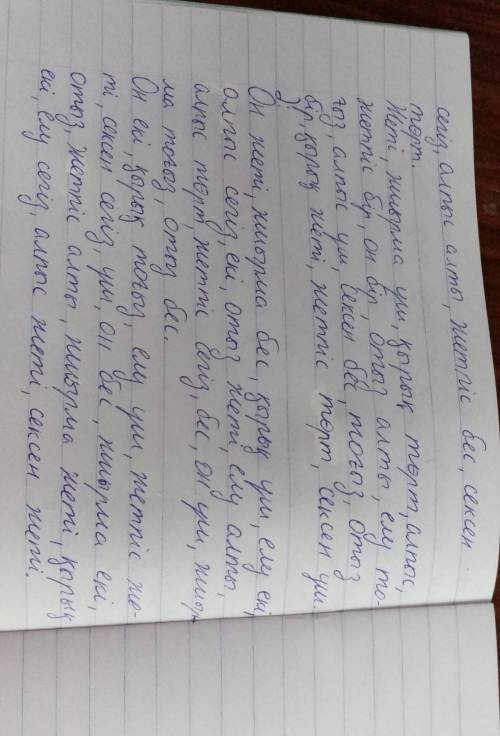 сегіз, алпыс алты, жетпіс бес, сексен
төрт.
Жеті, жиырма үш, қырық төрт, алпыс,
жетпіс бір, он бір, отыз алты, елу то-
ғыз, алпыс үш, сексен бес, тоғыз, отыз
бір, қырық жеті, жетпіс төрт, сексен үш.
Он жеті, жиырма бес, қырық үш, елу екі,
алпыс сегіз, екі, отыз жеті, елу алты,
алпыс төрт, жетпіс сегіз, бес, он үш, жиыр-
ма тоғыз, отыз бес.
Он екі, қырық тоғыз, елу үш, жетпіс же-
ті, сексен сегіз, үш, он бес, жиырма екі,
отыз, жетпіс алты, жиырма жеті, қырық
екі, елу сегіз, алпыс жеті, сексен жеті.